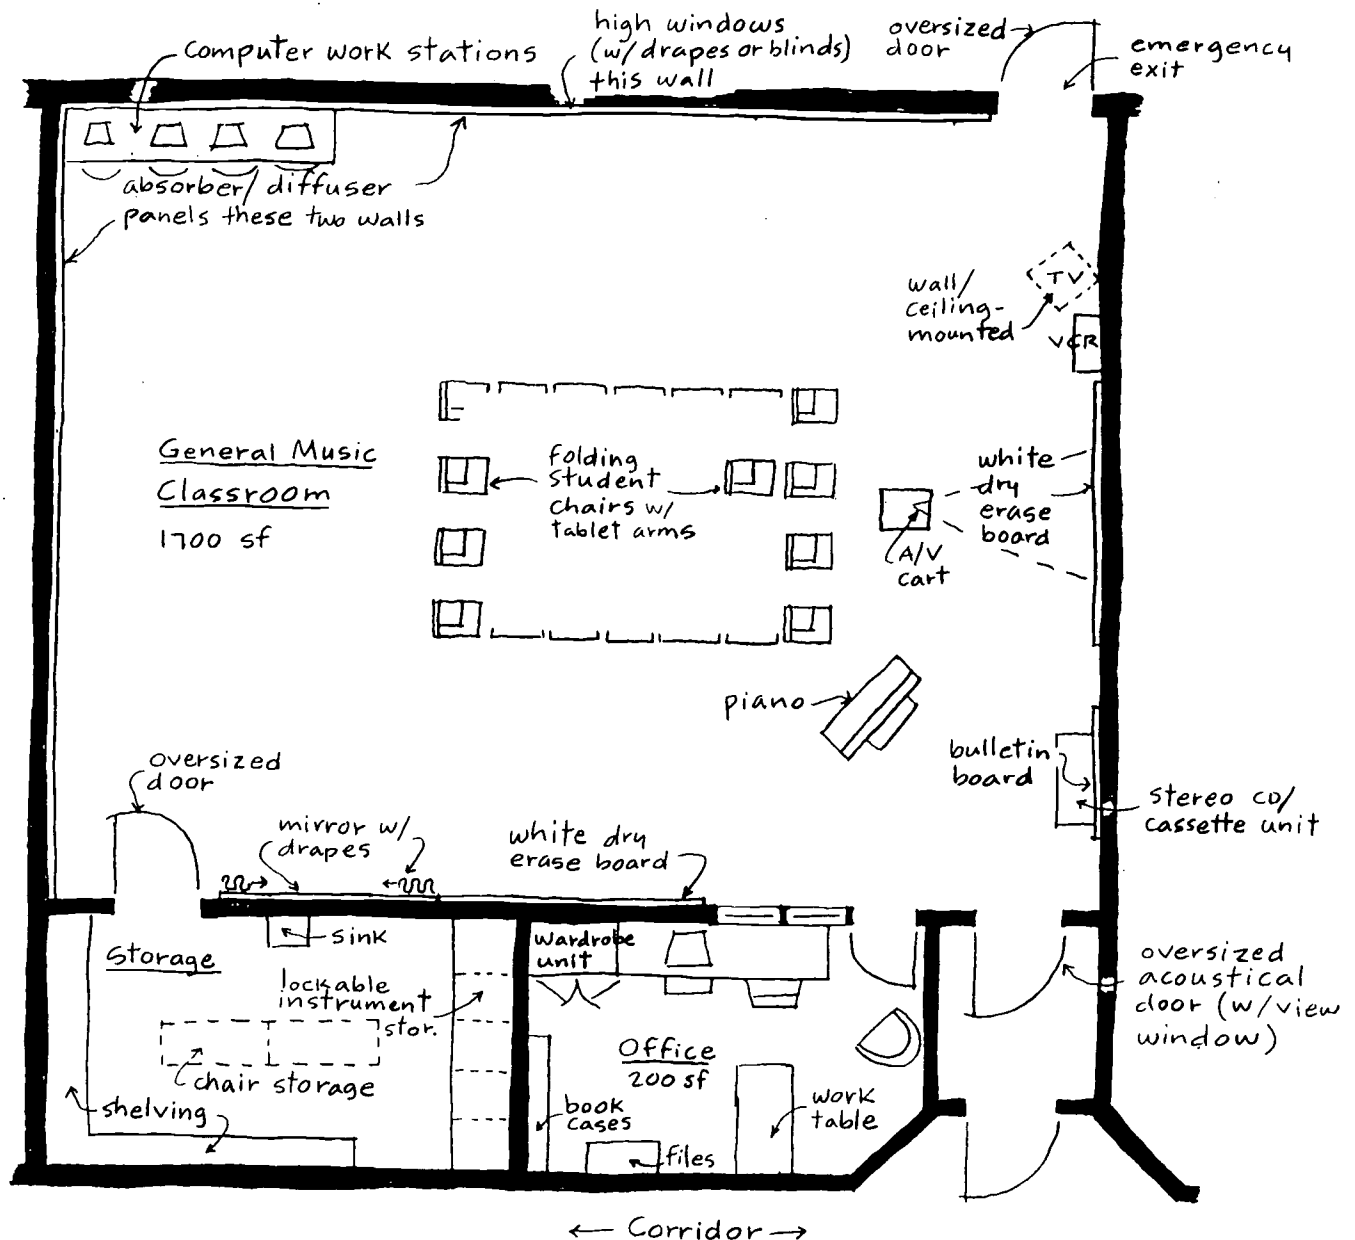 computer work stations
high windows
(w/drapes or blinds)
this wall
oversized
door
emergency
exit
absorber/diffuser
panels these two walls
wall/
ceiling-
mounted
TV
VCR
General Music
Classroom
1700 sf
folding
student
chairs w/
tablet arms
white
dry
erase
board
A/V
cart
piano
bulletin
board
stereo CD/
cassette unit
oversized
door
mirror w/
drapes
white dry
erase board
Storage
sink
lockable
instrument
stor.
chair storage
shelving
wardrobe
unit
Office
200 sf
book
cases
files
work
table
oversized
acoustical
door (w/view
window)
Corridor